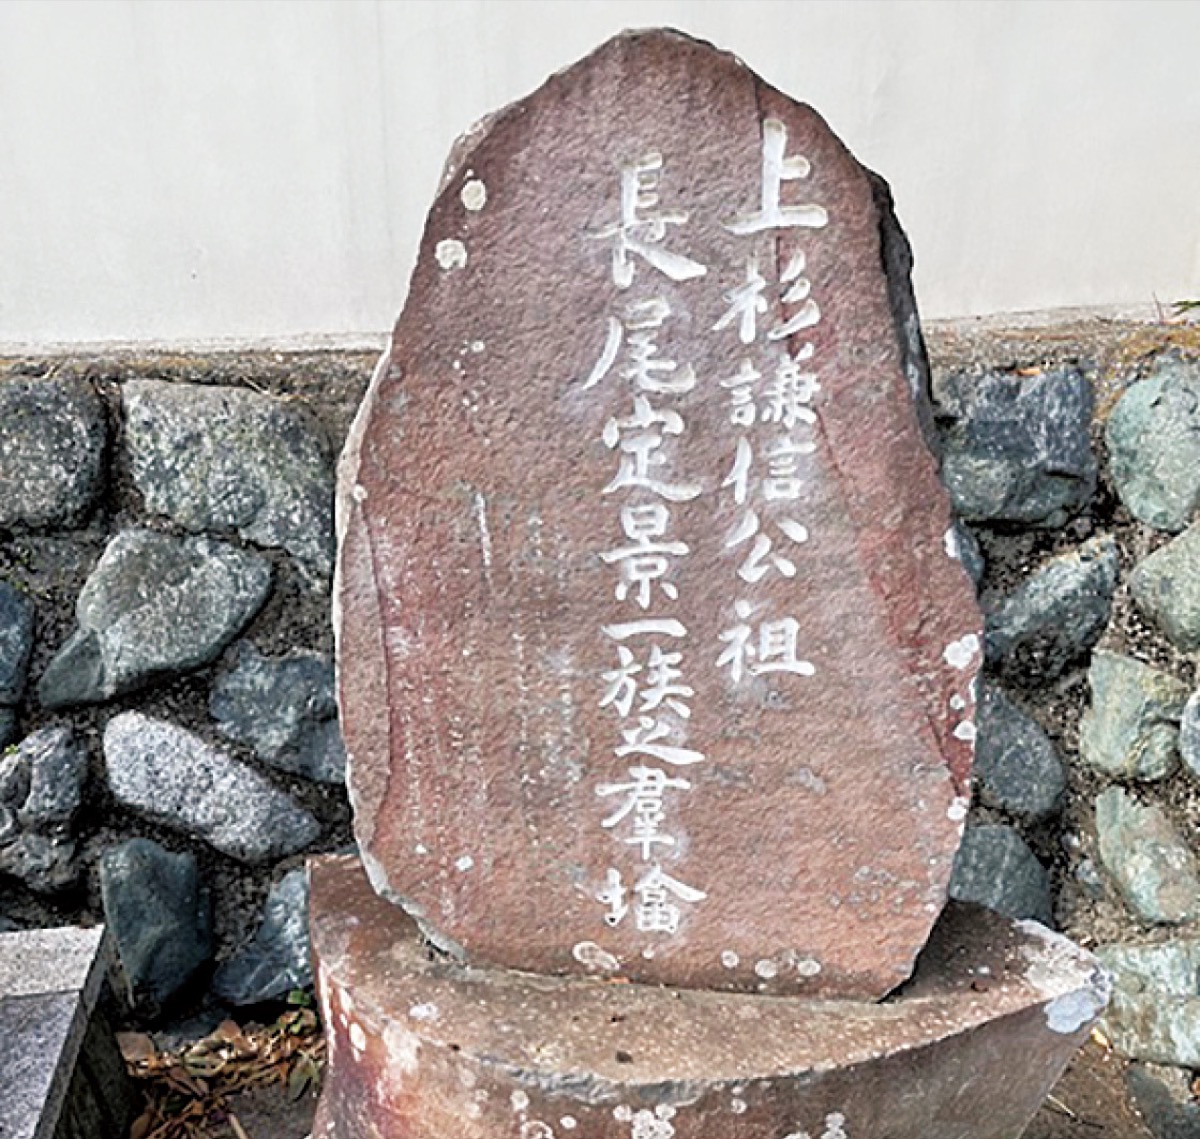 上杉謙信公祖
長尾定景一族之羣墖